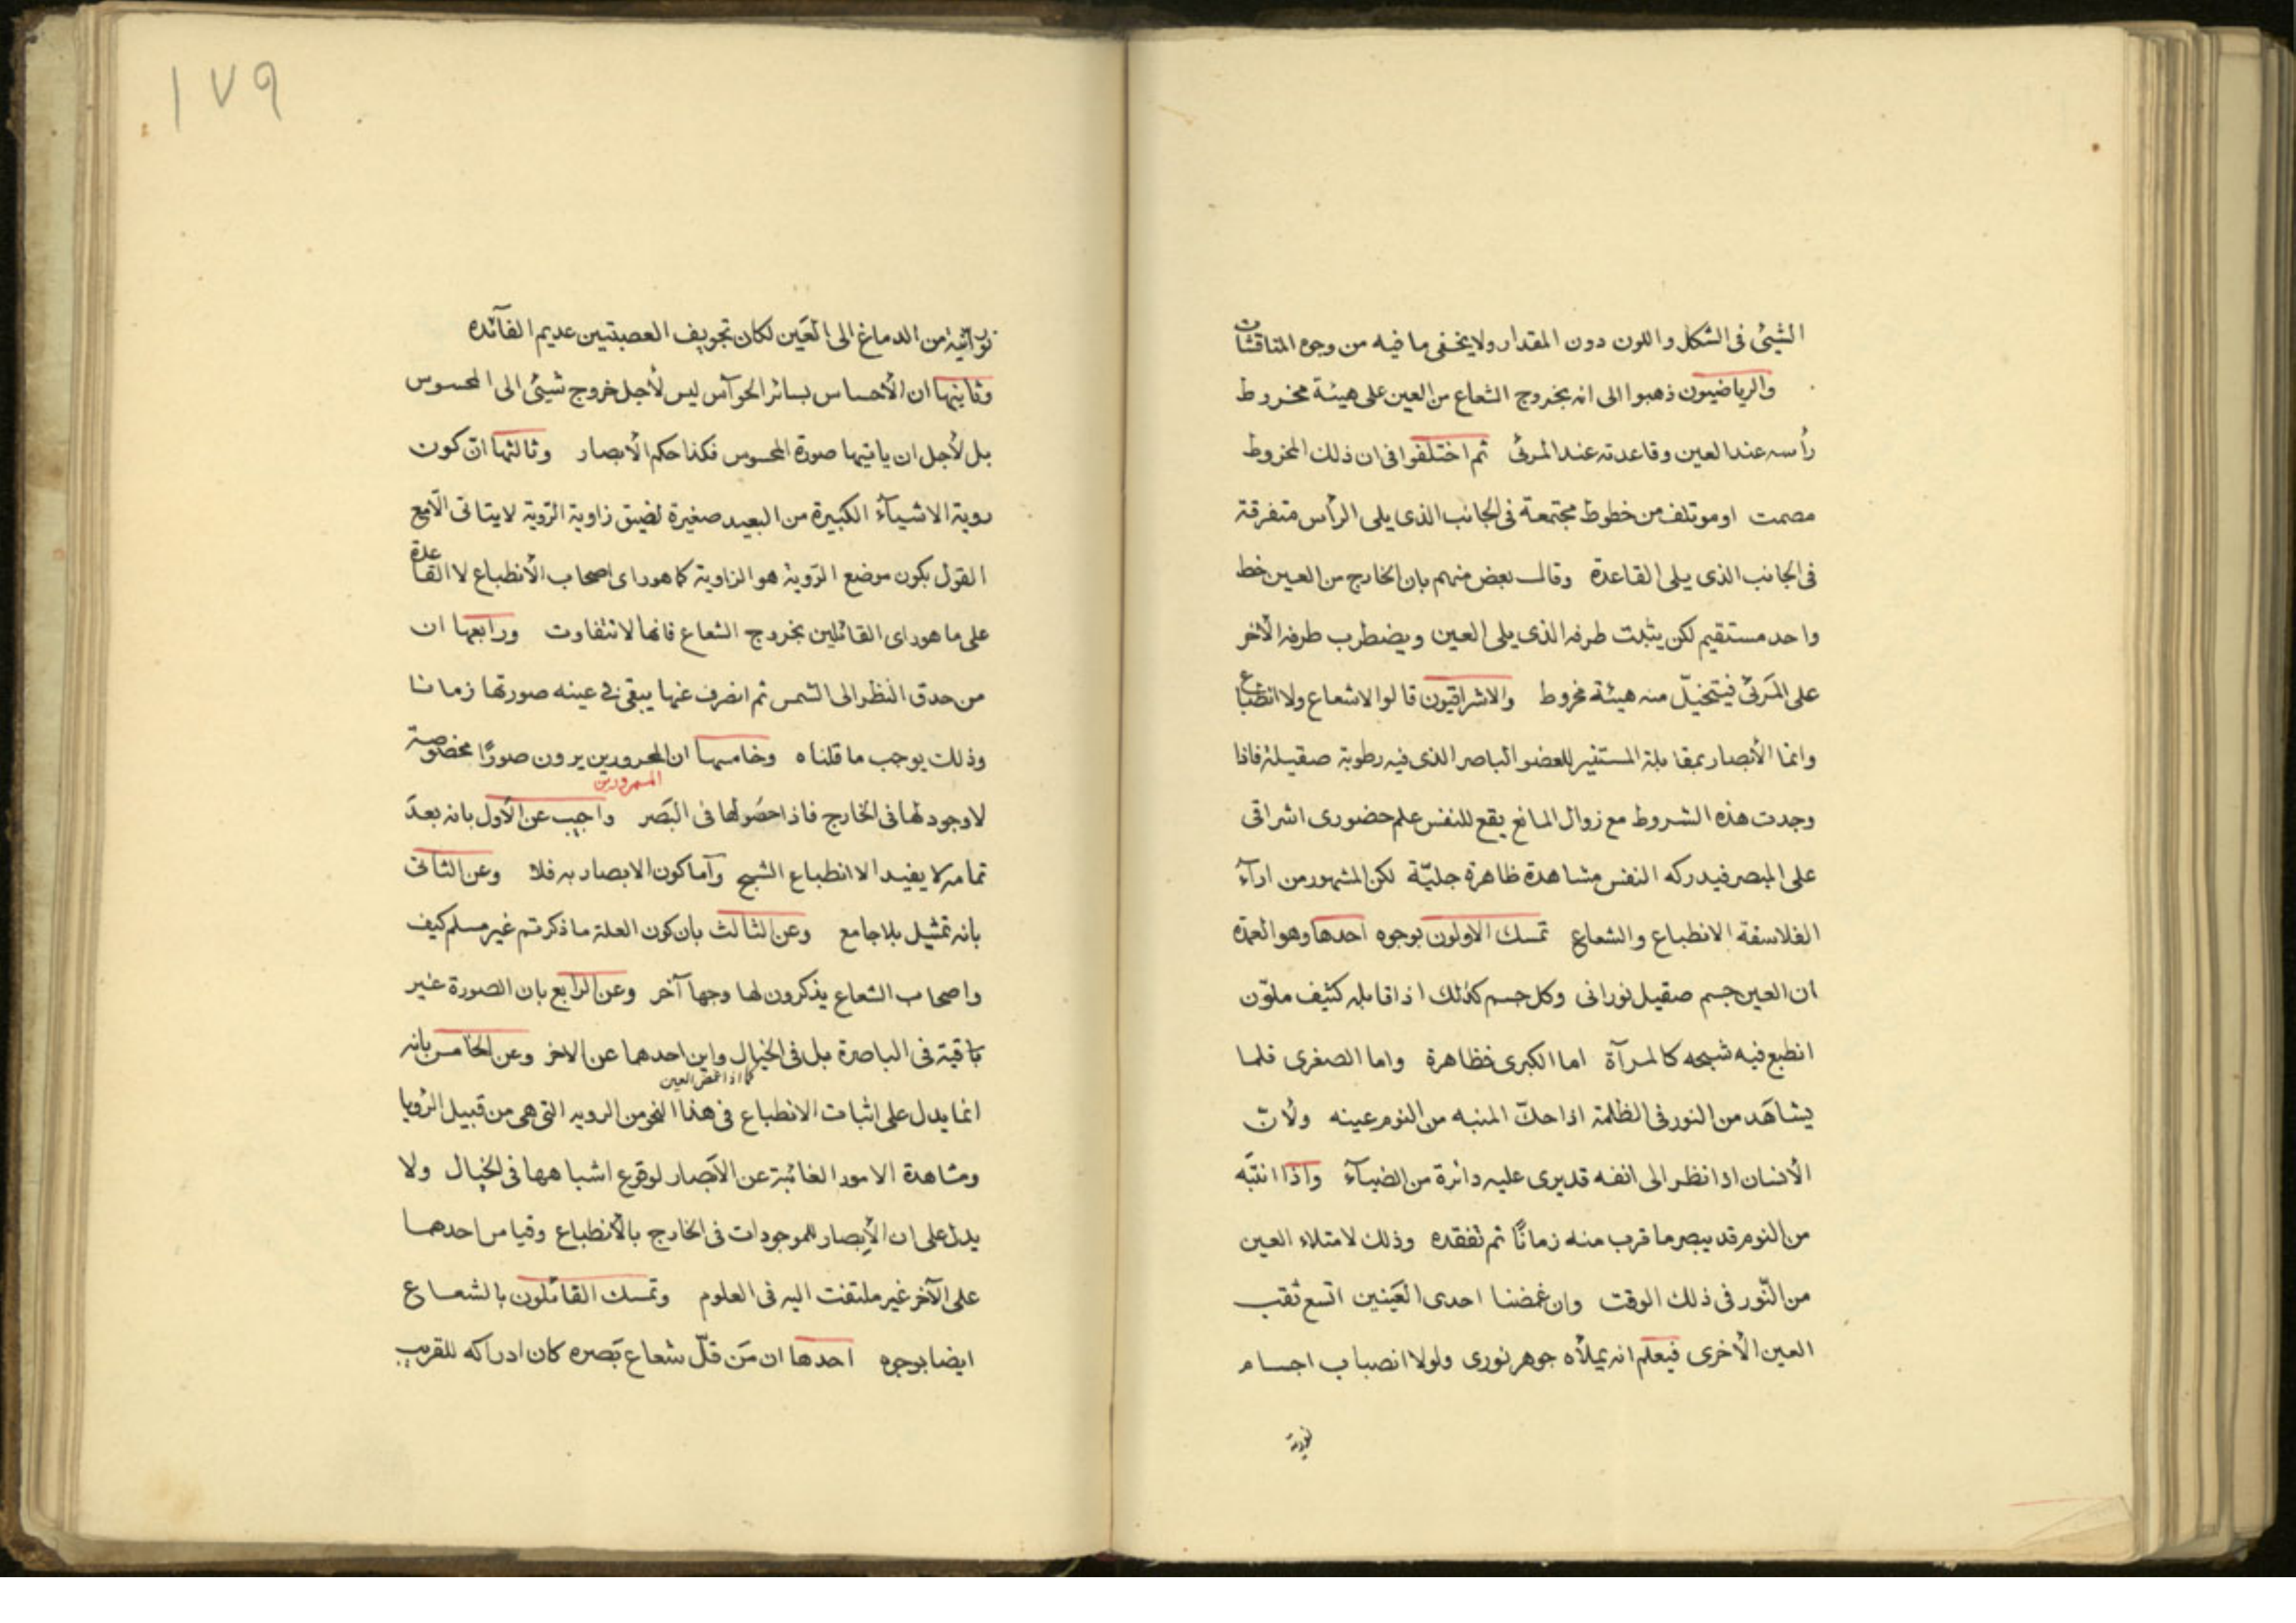 الشيئ فى الشكل واللون دون المقدار ولا يخفى ما فيه من وجوه المناقشات
والرياضيون ذهبوا الى انه بخروج الشعاع من العين على هيئة مخروط
رأسه عند العين وقاعدته عند المرئى ثم اختلفوا فى ان ذلك المخروط
مصمت او موتلف من خطوط مجتمعة فى الجانب الذى يلى الرأس متفرقة
فى الجانب الذى يلى القاعدة وقال بعض منهم بان الخارج من العين خط
واحد مستقيم لكن يثبت طرفه الذى يلى العين ويضطرب طرفه الأخر
على المرئى فيتخيّل منه هيئة مخروط والاشراقيون قالوا لا شعاع ولا انطباع
وانما الأبصار بمقابلة المستنير للعضو الباصر الذى فيه رطوبة صقيلة فاذا
وجدت هذه الشروط مع زوال المانع يقع للنفس علم حضورى اشراقى
على المبصر فيدركه النفس مشاهدة ظاهرة جليّة لكن المشهور من ارآء
الفلاسفة الانطباع والشعاع تمسك الاولون بوجوه احدها وهو العمدة
ان العين جسم صقيل نورانى وكل جسم كذلك اذا قابله كثيف ملوّن
انطبع فيه شبحه كالمرآة اما الكبرى فظاهرة واما الصغرى فلما
يشاهد من النور فى الظلمة اذا حكّ المنبه من النوم عينه ولأنّ
الأنسان اذا نظر الى انفه قد يرى عليه دائرة من الضيآء واذا انتبه
من النوم قد يبصر ما قرب منه زمانًا ثم تفقده وذلك لامتلاء العين
من النّور فى ذلك الوقت وان غمضنا احدى العينين اتسع ثقب
العين الأخرى فيعلم انه يملأه جوهر نورى ولولا انصباب اجسام
نورية
١٧٩
نورانية من الدماغ الى العين لكان تجويف العصبتين عديم الفآئده
وثانيها ان الأحساس بسائر الحوآس ليس لأجل خروج شيئى الى المحسوس
بل لأجل ان ياتيها صورة المحسوس فكذا حكم الأبصار وثالثها انّ كون
روية الاشيآء الكبيرة من البعيد صغيرة لضيق زاوية الرّوية لا يتاتى الّا مع
القول بكون موضع الرّوية هو الزاوية كما هو راى اصحاب الأنطباع لا القاعدة
على ما هو راى القائلين بخروج الشعاع فانها لا تتفاوت ورابعها ان
من حدق النظر الى الشمس ثم انصرف عنها يبقى فى عينه صورتها زمانا
وذلك يوجب ما قلناه وخامسها ان المحرورين يرون صورًا مخصوصة
الممرورين
لا وجود لها فى الخارج فاذا حصُولها فى البَصَر واجيب عن الأول بانه بعدَ
تمامه لا يفيد الا انطباع الشبح وآما كون الابصار به فلا وعن الثانى
بانه تمثيل بلا جامع وعن الثالث بان كون العلة ما ذكرتم غير مسلم كيف
واصحاب الشعاع يذكرون لها وجها آخر وعن الرابع بان الصورة غير
باقية فى الباصرة بل فى الخيال واين احدهما عن الاخر وعن الخامس بانه
كما اذا غمض العين
انما يدل على اثبات الانطباع فى هذا النحو من الرويه التى هى من قبيل الرُويا
ومشاهدة الامور الغائبة عن الأبصار لوقوع اشباهها فى الخيال ولا
يدل على ان الأبصار للموجودات فى الخارج بالأنطباع وقياس احدهما
على الآخر غير ملتفت اليه فى العلوم وتمسك القائلون بالشعاع
ايضا بوجوه احدها ان مَن قلّ شعاع بَصره كان ادراكه للقريب